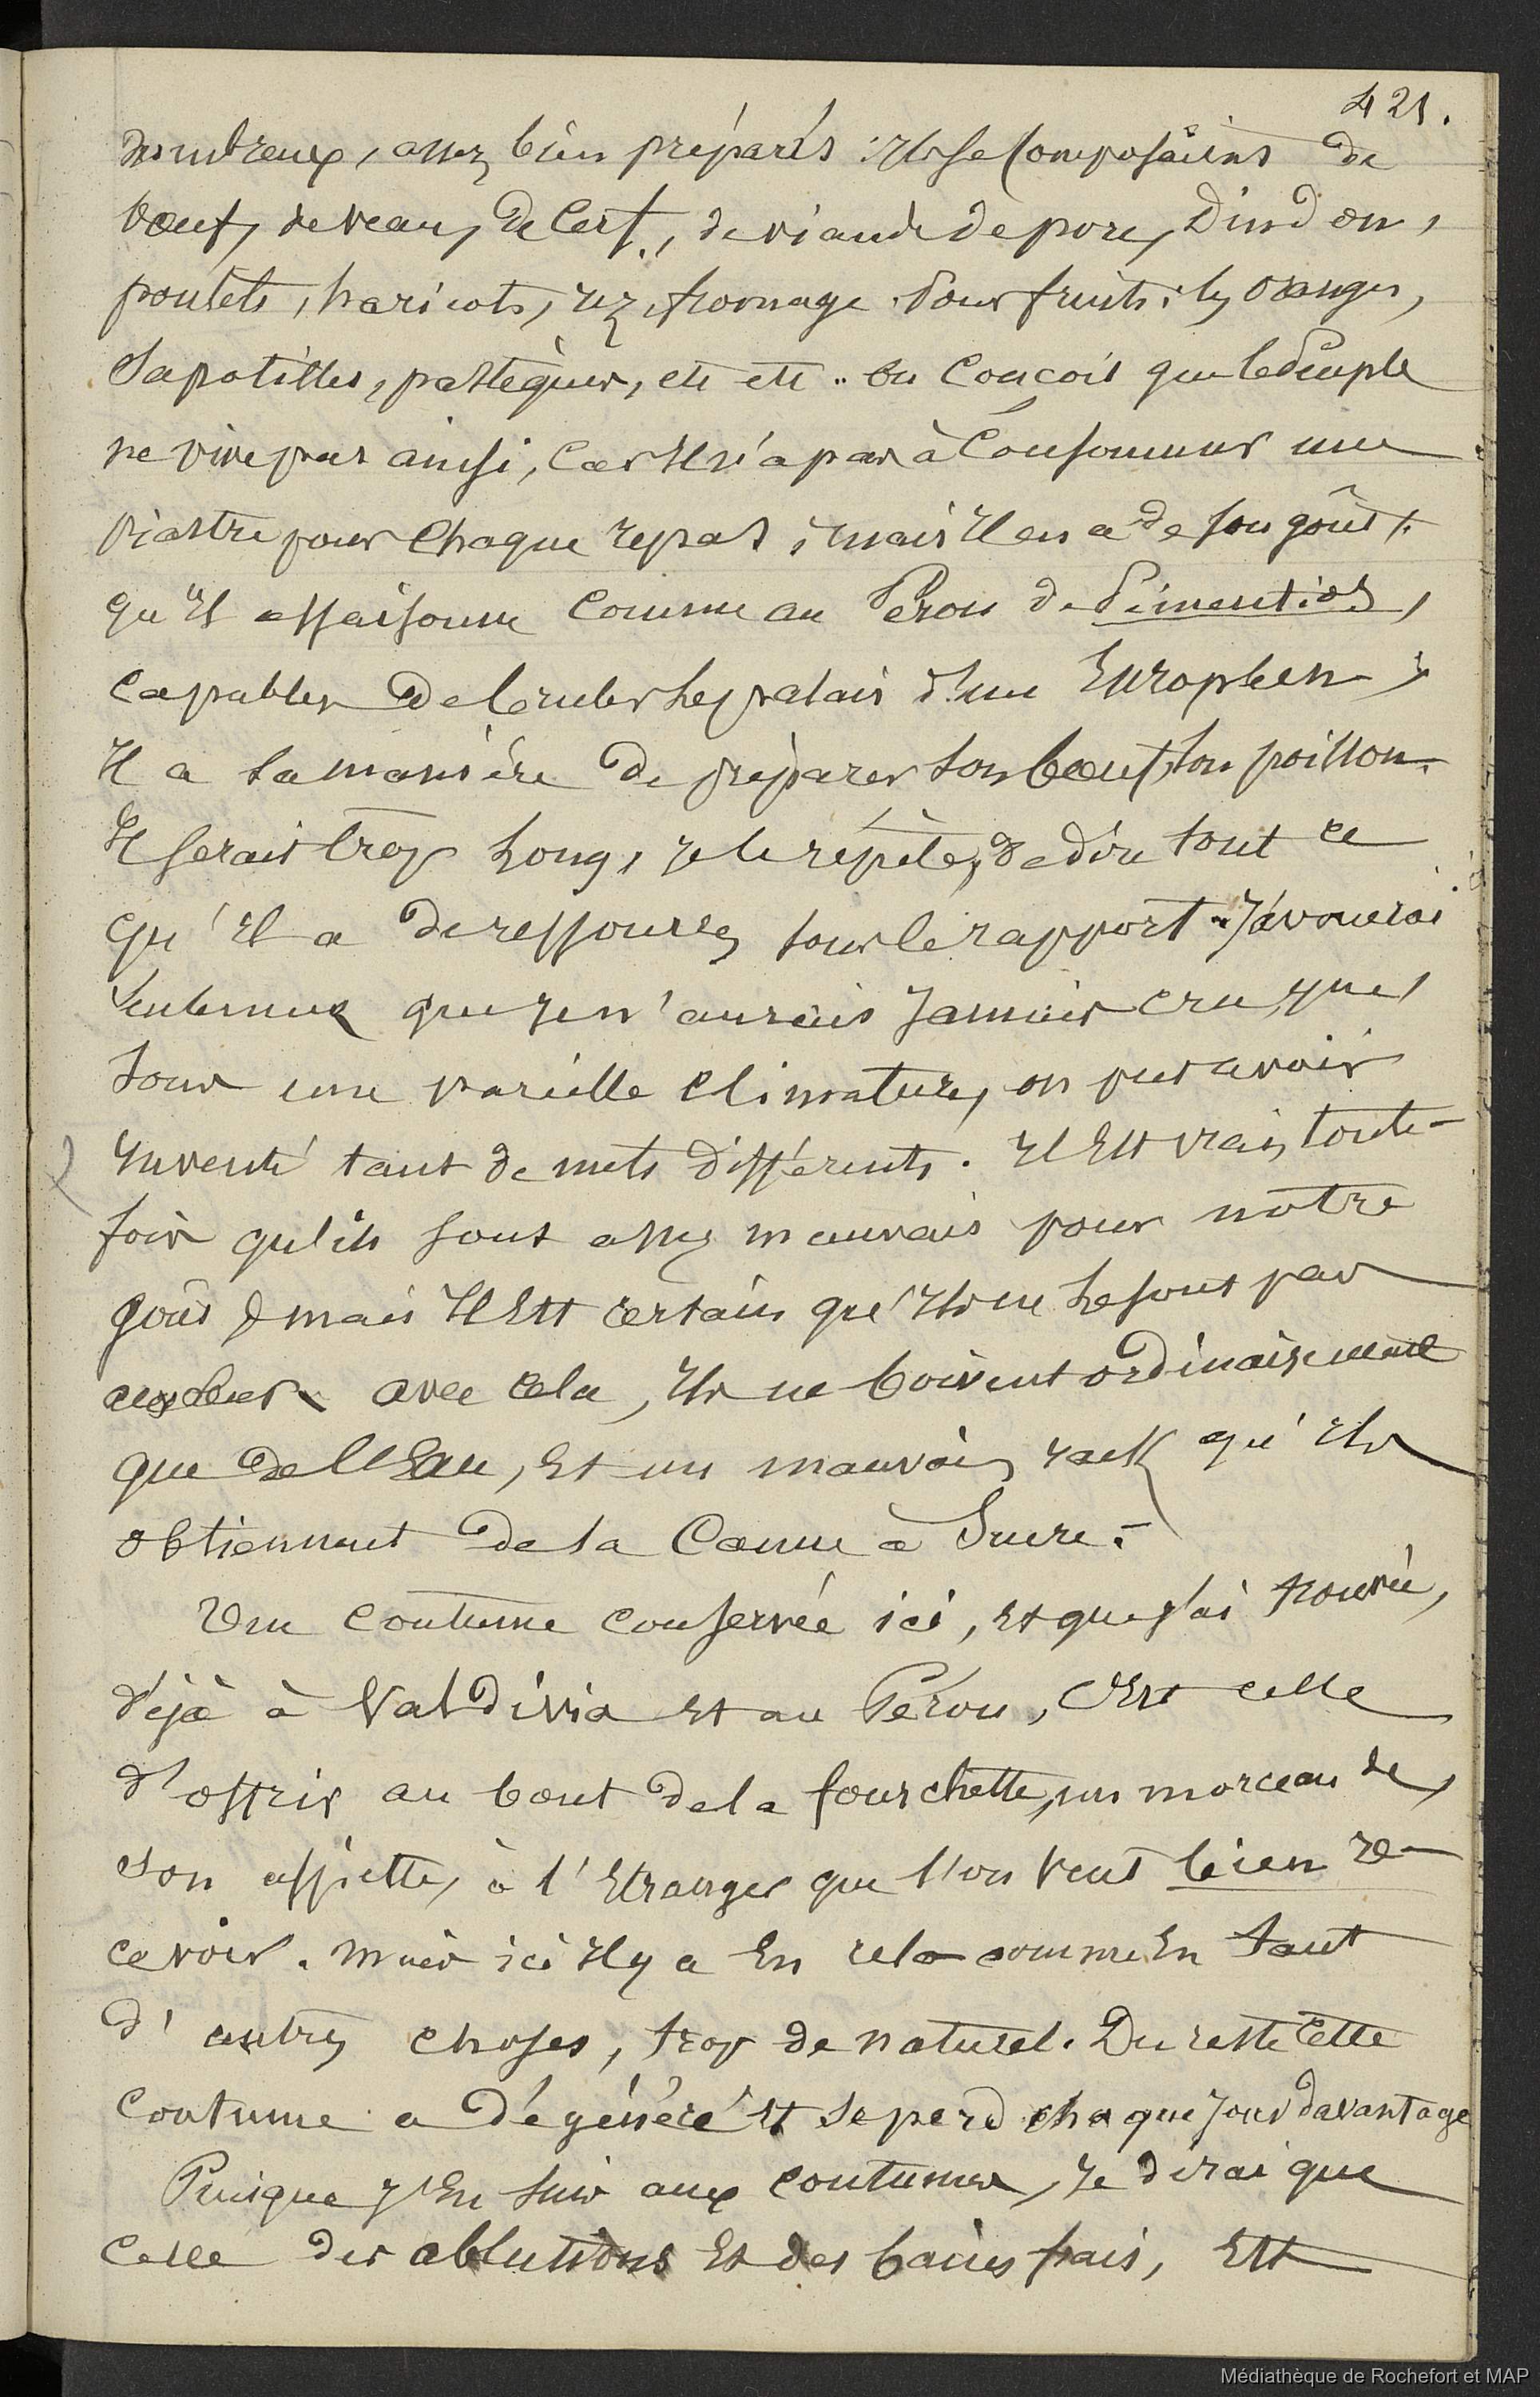 421.
nombreux, assez bien préparés : Ils se composaient de
bœuf, de veau, de Cerf., de viande de porc, Dindon,
poulets, haricots, riz, fromage. Pour fruits : les oranges,
Sapotilles, pastèques, etc etc .. On Conçoit que le Peuple
ne vive pas ainsi, Car Il n'a pas à Consommer une
Piastre pour Chaque repas ; mais Il en a de son goût,
qu'Il assaisonne Comme au Pérou de Pimentios,
Capables de bruler le palais d'un Européen ;
Il a sa manière de préparer son bœuf, son poisson.
Il serait trop long, je le répète, de dire tout ce
qu'Il a de ressources sous le rapport. J'avouerai
Seulement que je n'aurais Jamais cru, que,
Sous une pareille Climature, on put avoir
Inventé tant de mets différents. Il Est vrai, toute-
fois qu'ils sont assez mauvais pour notre
goût ; mais Il Est certain qu'Ils ne le sont pas
au leur. avec cela, Ils ne boivent ordinairement
que de l'Eau, Et un mauvais rack qu'Ils
obtiennent de la Canne à Sucre. -
Une Coutume conservée ici, Et que j'ai trouvée,
déjà à Valdivia Et au Pérou, C'Est celle
d'offrir au bout de la fourchette, un morceau de,
son assiette, à l'Etranger que l'on veut bien re-
cevoir. Mais ici Il y a En cela comme En tant
d'autres choses, trop de naturel. Du reste Cette
Coutume a dégénéré Et se perd chaque Jour davantage
Puisque j'En suis aux coutumes, Je dirai que
Celle des ablutions Et des bains frais, Est
Médiathèque de Rochefort et MAP